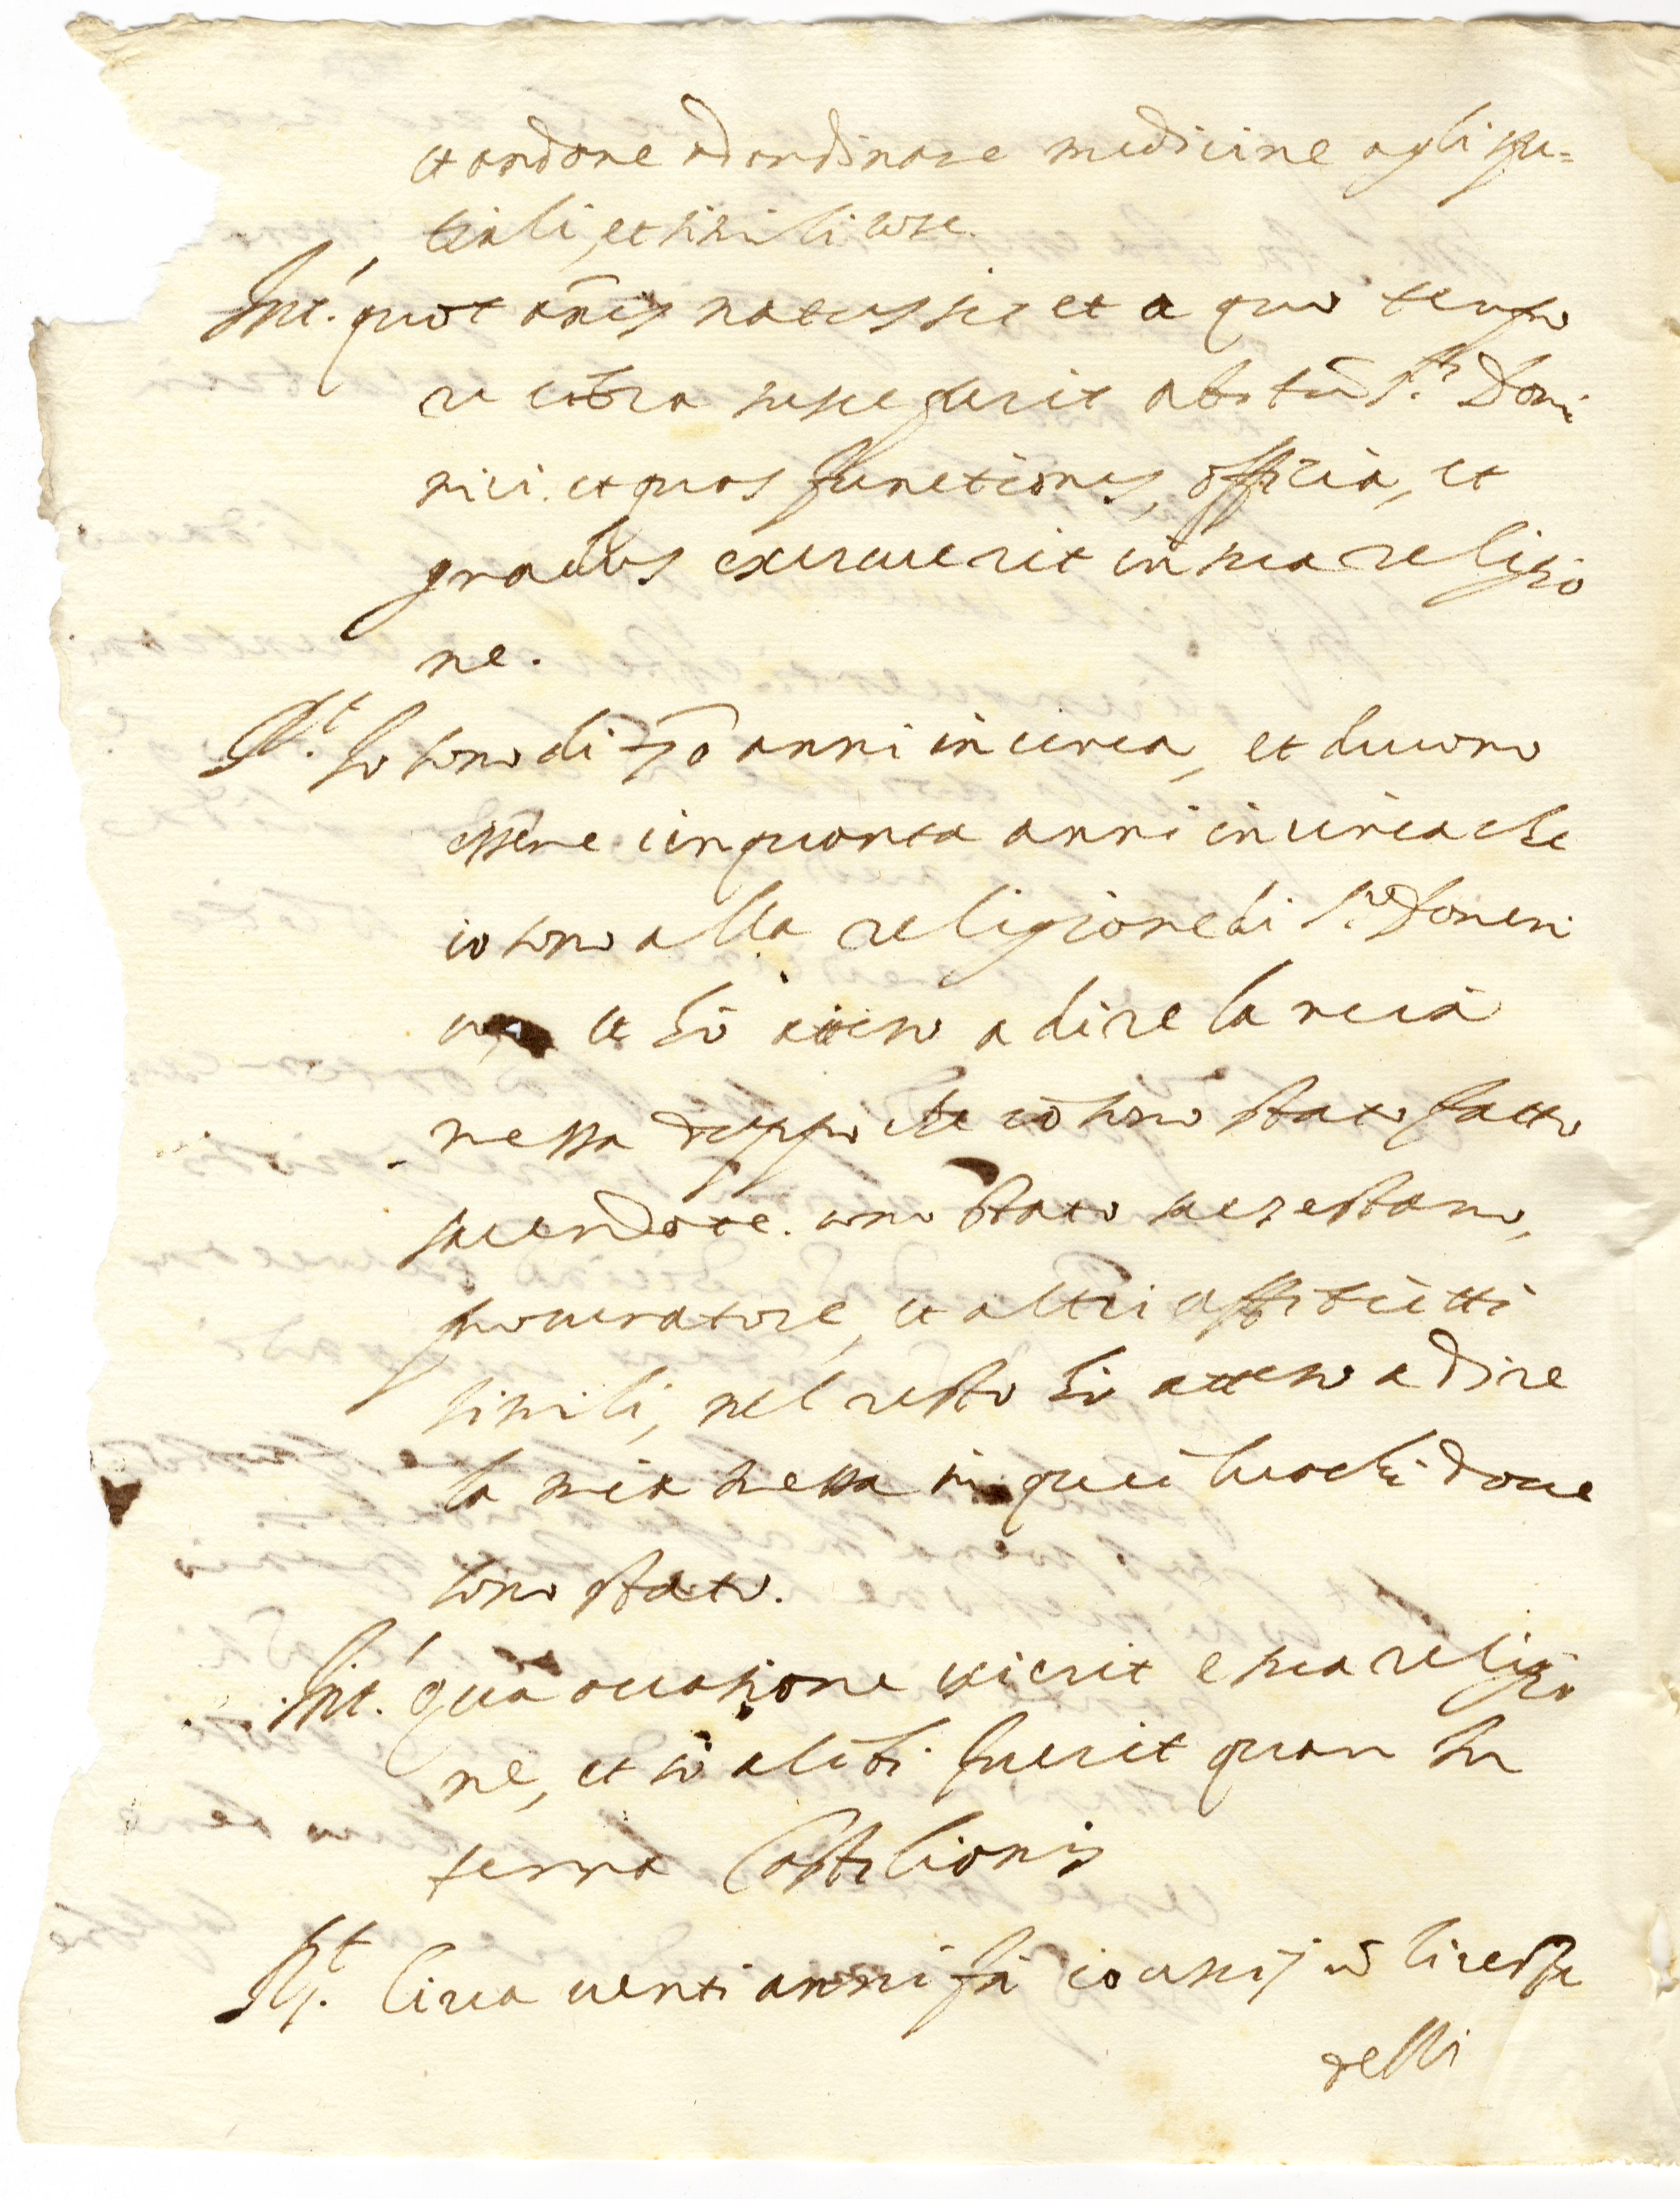 et andare ad ordinare medicine agli spe=
tiali, et simili cose.
Int.' quot annis natus sit et a quo tempo
re citra susceperit abitũ S.ti Domi
nici. et quas functiones, officia, et
gradus exercuerit in sua religio
ne.
R.t Io sono di 70 anni in circa, et ducono
essere cinquanta anni in circa che
io sono alla religione di S.to Domeni
co et hò atteso a dire la mia
messa doppo che io sono stato fatto
sacerdote. sono stato sacrestano,
procuratore, et altri offitietti
simili, nel resto hò atteso a dire
la mia messa in quei luochi doue
sono stato.
Int.' qua occasione exierit e sua religio
ne, et si alibi fuerit quam in
terra Castilionis
R.t Circa uenti anni fà io uscij cõ licenza
delli